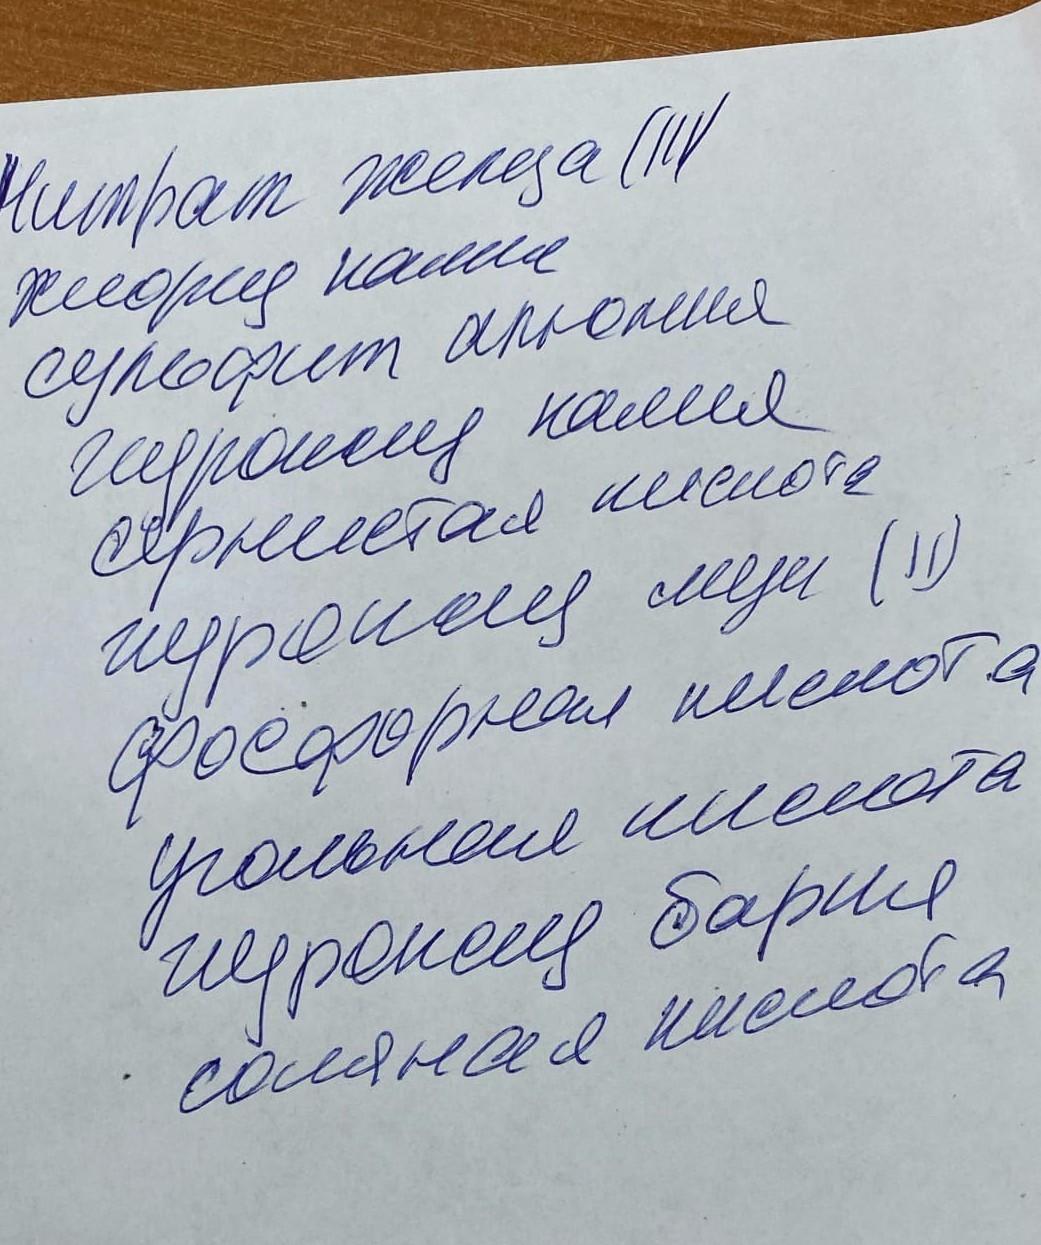 Нитрат железа (III)
хлорид калия
сульфит алюминия
гидроксид калия
сернистая кислота
гидроксид меди (II)
фосфорная кислота
угольная кислота
гидроксид бария
соляная кислота